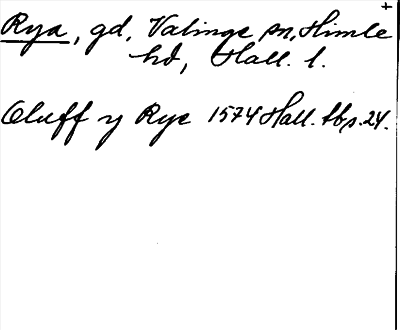 Rya, gd, Valinge sn, Himle
hd, Hall. l.
Oluff y Rye 1574 Hall. tb s. 24.